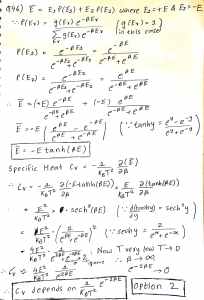 Q46) Ē = E₁P(E₁) + E₂P(E₂) where E₂=+E & E₁=-E
∴ P(Eᵣ) = g(Eᵣ) e^(-βEᵣ) / Σᵣ g(Eᵣ) e^(-βEᵣ) (g(Eᵣ) = 1 in this case)
P(E₂) = e^(-βE₂) / (e^(-βE₂) + e^(-βE₁)) = e^(-βE) / (e^(-βE) + e^(βE))
P(E₁) = e^(-βE₁) / (e^(-βE₁) + e^(-βE₂)) = e^(βE) / (e^(βE) + e^(-βE))
∴ Ē = (+E) e^(-βE) / (e^(-βE) + e^(βE)) + (-E) e^(βE) / (e^(βE) + e^(-βE))
Ē = -E [ (e^(βE) - e^(-βE)) / (e^(βE) + e^(-βE)) ] (∵ tanhy = (e^y - e^(-y)) / (e^y + e^(-y)))
Ē = -E tanh(βE)
Specific Heat Cᵥ = -1/(k_BT²) ∂(Ē)/∂β
∴ Cᵥ = -1/(k_BT²) ∂(-E tanh(βE))/∂β = E/(k_BT²) ∂(tanh(βE))/∂β
= E²/(k_BT²) · sech²(βE) (∵ d(tanhy)/dy = sech²y)
= E²/(k_BT²) (2/(e^(βE) + e^(-βE)))² (∵ sechy = 2/(e^y + e^(-y)))
= 4E²/(k_BT²) Now T very low T→0
∴ β→∞
e^(-2βE) →0
Cᵥ ≈ 4E²/(k_BT²)
∴ Cᵥ depends on 1/(k_BT²) e^(-2βE)
Option 2